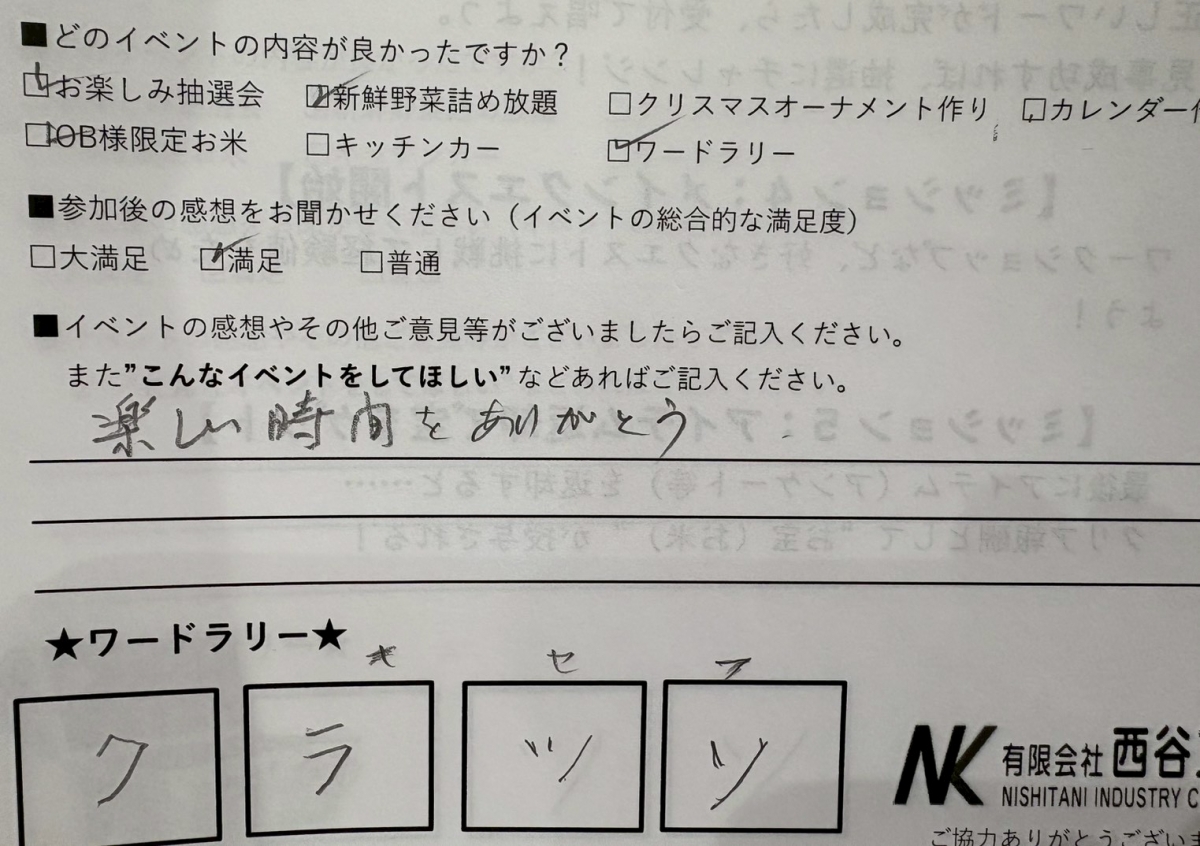 ■どのイベントの内容が良かったですか？
☑お楽しみ抽選会 ☑新鮮野菜詰め放題 □クリスマスオーナメント作り □カレンダー作
☑OB様限定お米 □キッチンカー ☑ワードラリー
■参加後の感想をお聞かせください（イベントの総合的な満足度）
□大満足 ☑満足 □普通
■イベントの感想やその他ご意見等がございましたらご記入ください。
また”こんなイベントをしてほしい”などあればご記入ください。
楽しい時間をありがとう
★ワードラリー★
キ セ フ
ク ラ ツ ソ
NK 有限会社 西谷
NISHITANI INDUSTRY C
ご協力ありがとうござい